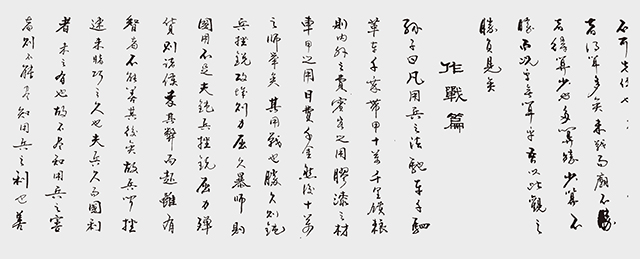 不可先傳也
者得算多矣未戰而廟不勝
者得算少也多算勝少算不
勝而況於無算乎吾以此觀之
勝負見矣
作戰篇
孫子曰凡用兵之法馳車千駟
革車千乘帶甲十萬千里饋糧
則內外之費賓客之用膠漆之材
車甲之用日費千金然後十萬
之師舉矣其用戰也勝久則鈍
兵挫銳攻城則力屈久暴師則
國用不足夫鈍兵挫銳屈力殫
貨則諸侯乘其弊而起雖有
智者不能善其後矣故兵聞拙
速未睹巧之久也夫兵久而國利
者未之有也故不盡知用兵之害
者則不能盡知用兵之利也善